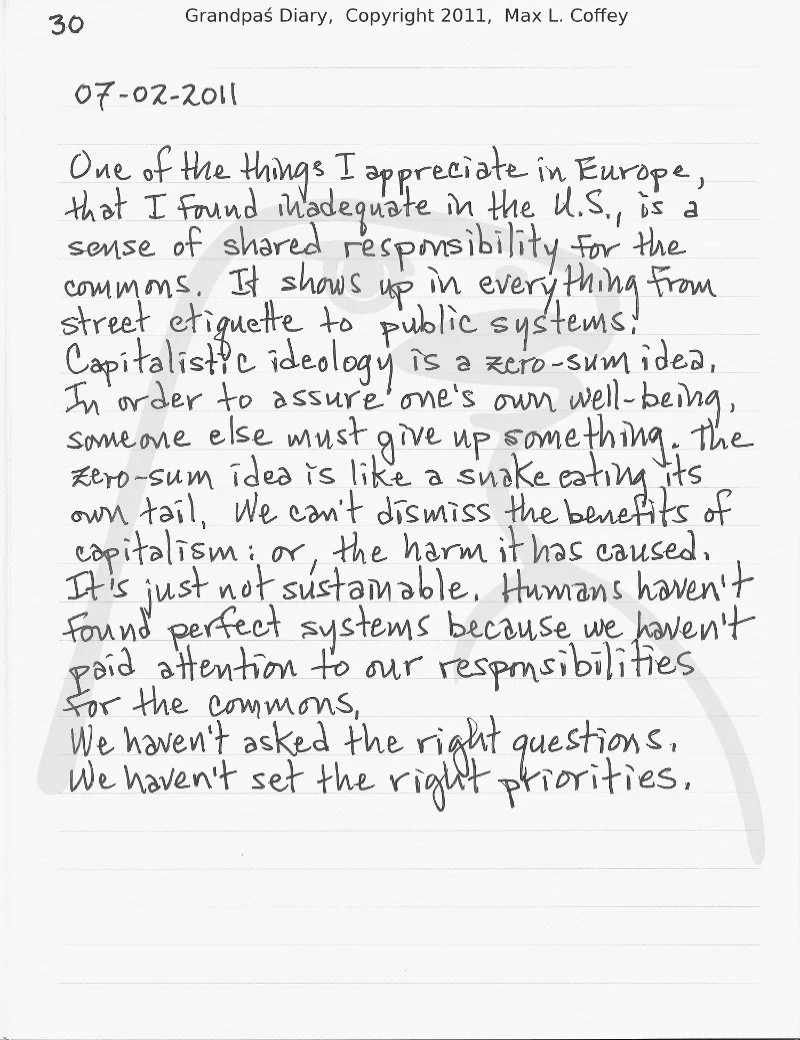 30
Grandpaś Diary, Copyright 2011, Max L. Coffey
07-02-2011
One of the things I appreciate in Europe,
that I found inadequate in the U.S., is a
sense of shared responsibility for the
commons. It shows up in everything from
street etiquette to public systems.
Capitalistic ideology is a zero-sum idea.
In order to assure one's own well-being,
someone else must give up something. The
zero-sum idea is like a snake eating its
own tail. We can't dismiss the benefits of
capitalism: or, the harm it has caused.
It's just not sustainable. Humans haven't
found perfect systems because we haven't
paid attention to our responsibilities
for the commons.
We haven't asked the right questions.
We haven't set the right priorities.